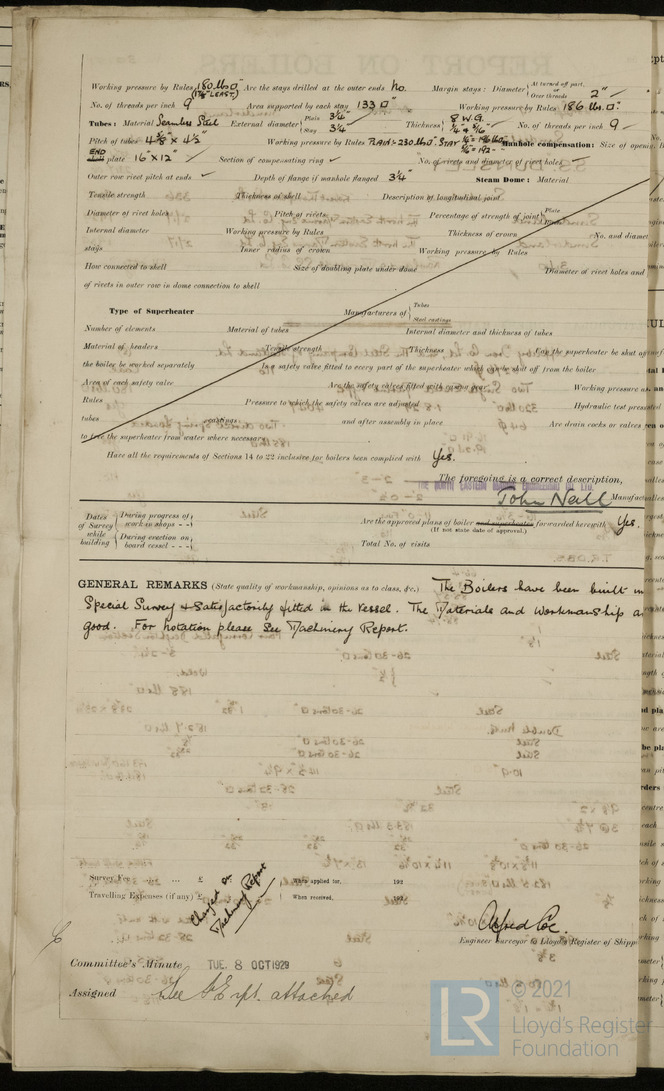 Working pressure by Rules 180 lbs □" (1⅞" LEAST) Are the stays drilled at the outer ends No. Margin stays: Diameter { At turned off part, Over threads 2" ✓
No. of threads per inch 9 Area supported by each stay 133 □" Working pressure by Rules 186 lbs. □".
Tubes: Material Seamless Steel External diameter { Plain 3¼" Stay 3¼" Thickness { 8 W.G. No. of threads per inch 9 ✓
Pitch of tubes 4⅜" x 4½" Working pressure by Rules PLAIN:- 230 lbs □" STAY Manhole compensation: Size of opening
END plate 16" x 12" ✓ Section of compensating ring ✓ No. of rivets and diameter of rivet holes ✓
Outer row rivet pitch at ends ✓ Depth of flange if manhole flanged 3¼" Steam Dome: Material
Tensile strength Thickness of shell Description of longitudinal joint
Diameter of rivet holes Pitch of rivets Percentage of strength of joint { Plate
Internal diameter Working pressure by Rules Thickness of crown No. and diamet
stays Inner radius of crown Working pressure by Rules
How connected to shell Size of doubling plate under dome Diameter of rivet holes and
of rivets in outer row in dome connection to shell
Type of Superheater Manufacturers of { Tubes Steel castings
Number of elements Material of tubes Internal diameter and thickness of tubes
Material of headers Tensile strength Thickness Can the superheater be shut off
the boiler be worked separately Is a safety valve fitted to every part of the superheater which can be shut off from the boiler
Area of each safety valve Are the safety valves fitted with easing gear Working pressure
Rules Pressure to which the safety valves are adjusted Hydraulic test pres
tubes castings and after assembly in place Are drain cocks or valves
to free the superheater from water where necessary
Have all the requirements of Sections 14 to 22 inclusive for boilers been complied with Yes.
The foregoing is a correct description,
THE NORTH EASTERN MARINE ENGINEERING CO. LTD.
John Neill Manufac
Dates of Survey while building { During progress of work in shops - - During erection on board vessel - - -
Are the approved plans of boiler and superheater forwarded herewith Yes.
(If not state date of approval.)
Total No. of visits
GENERAL REMARKS (State quality of workmanship, opinions as to class, &c.) The Boilers have been built
Special Survey & Satisfactorily fitted in the Vessel. The Materials and Workmanship
good. For notation please See Machinery Report.
Survey Fee ... ... £ When applied for, 192
Travelling Expenses (if any) £ When received, 192
Charged on Machinery Report
Alfred Coe.
Engineer Surveyor to Lloyd's Register of Shipp
Committee's Minute TUE. 8 OCT 1929
Assigned See F.E. rpt. attached
LR © 2021
Lloyd's Register
Foundation